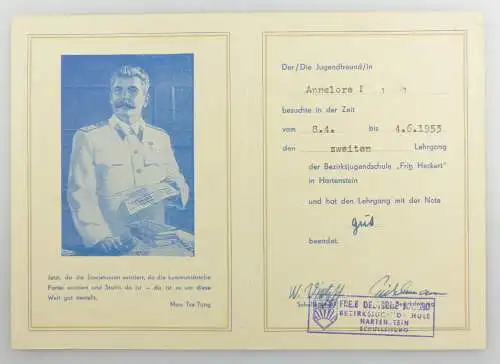 Jetzt, da die Sowjetunion existiert, da die kommunistische
Partei existiert und Stalin da ist — da ist es um diese
Welt gut bestellt.
Mao Tse Tung
Der/Die Jugendfreund/in
Annelore
besuchte in der Zeit
vom 8.4. bis 4.6.1953
den zweiten Lehrgang
der Bezirksjugendschule „Fritz Heckert“ in
in Hartenstein
und hat den Lehrgang mit der Note
gut
beendet.
FREIE DEUTSCHE JUGEND
BEZIRKSJUGENDSCHULE
HARTENSTEIN
SCHULLEITUNG